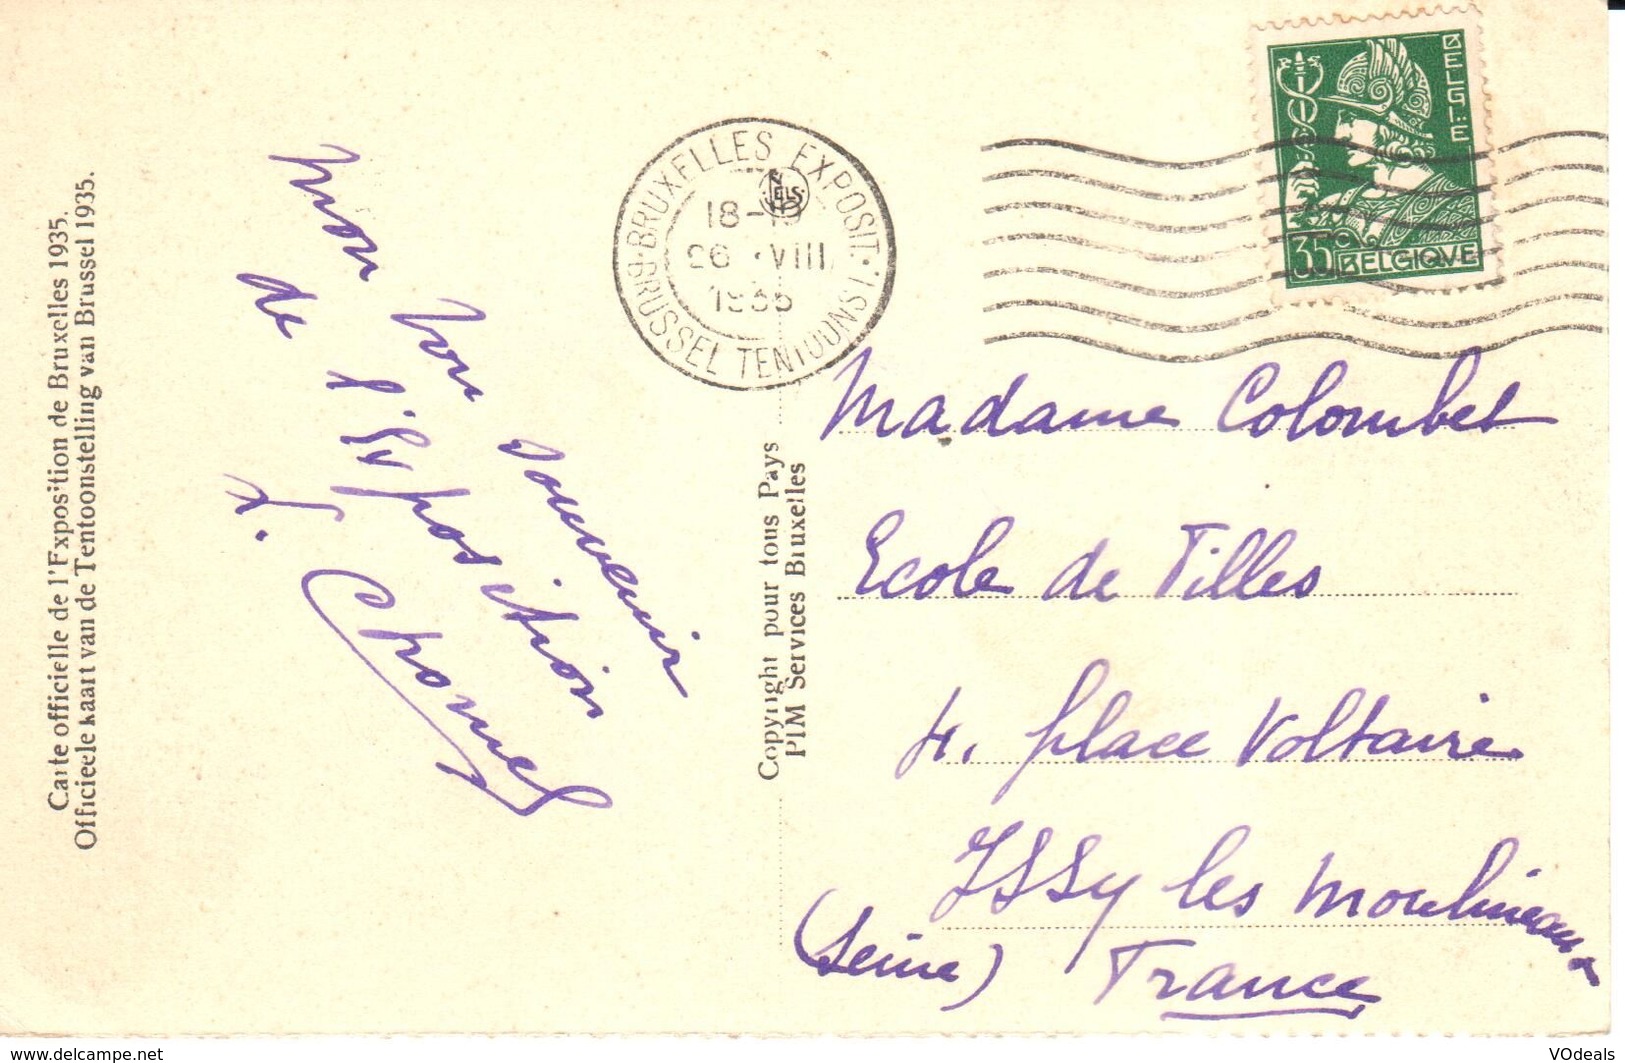 Carte officielle de l'Exposition de Bruxelles 1935.
Officieele kaart van de Tentoonstelling van Brussel 1935.
Mon bon souvenir
de l'Exposition
BRUXELLES EXPOSIT. 1
BRUSSEL TENTOONST.
18-19
26 VIII
1935
ELS
BELGIË
35c BELGIQVE
Copyright pour tous Pays
PIM Services Bruxelles
Madame Colombet
Ecole de Filles
4, place Voltaire
Issy les Moulineaux
(Seine) France
www.delcampe.net
VOdeals